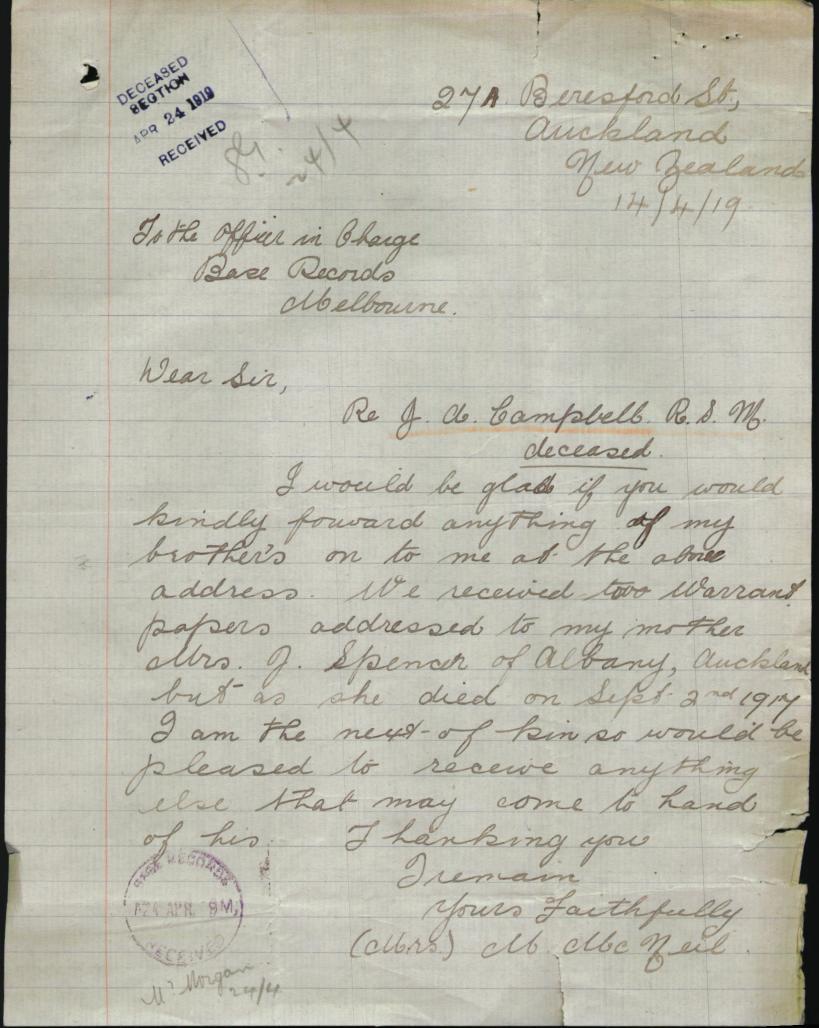 DECEASED
SECTION
APR 24 1919
RECEIVED
24/4
27A Beresford St.,
Auckland
New Zealand
14/4/19
To the Officer in Charge
Base Records
Melbourne.
Dear Sir,
Re J. A. Campbell R. S. M.
deceased.
I would be glad if you would
kindly foward anything of my
brother's on to me at the above
address. We received two Warrant
papers addressed to my mother
Mrs. J. Spencer of Albany, Auckland
but as she died on Sept 2nd 1917
I am the next-of kin so would be
pleased to receive anything
else that may come to hand
of his. Thanking you
I remain
Yours Faithfully
(Mrs.) M. McNeil.
BASE RECORDS
A24 APR. 9M
RECEIVED
Mr Morgan
24/4